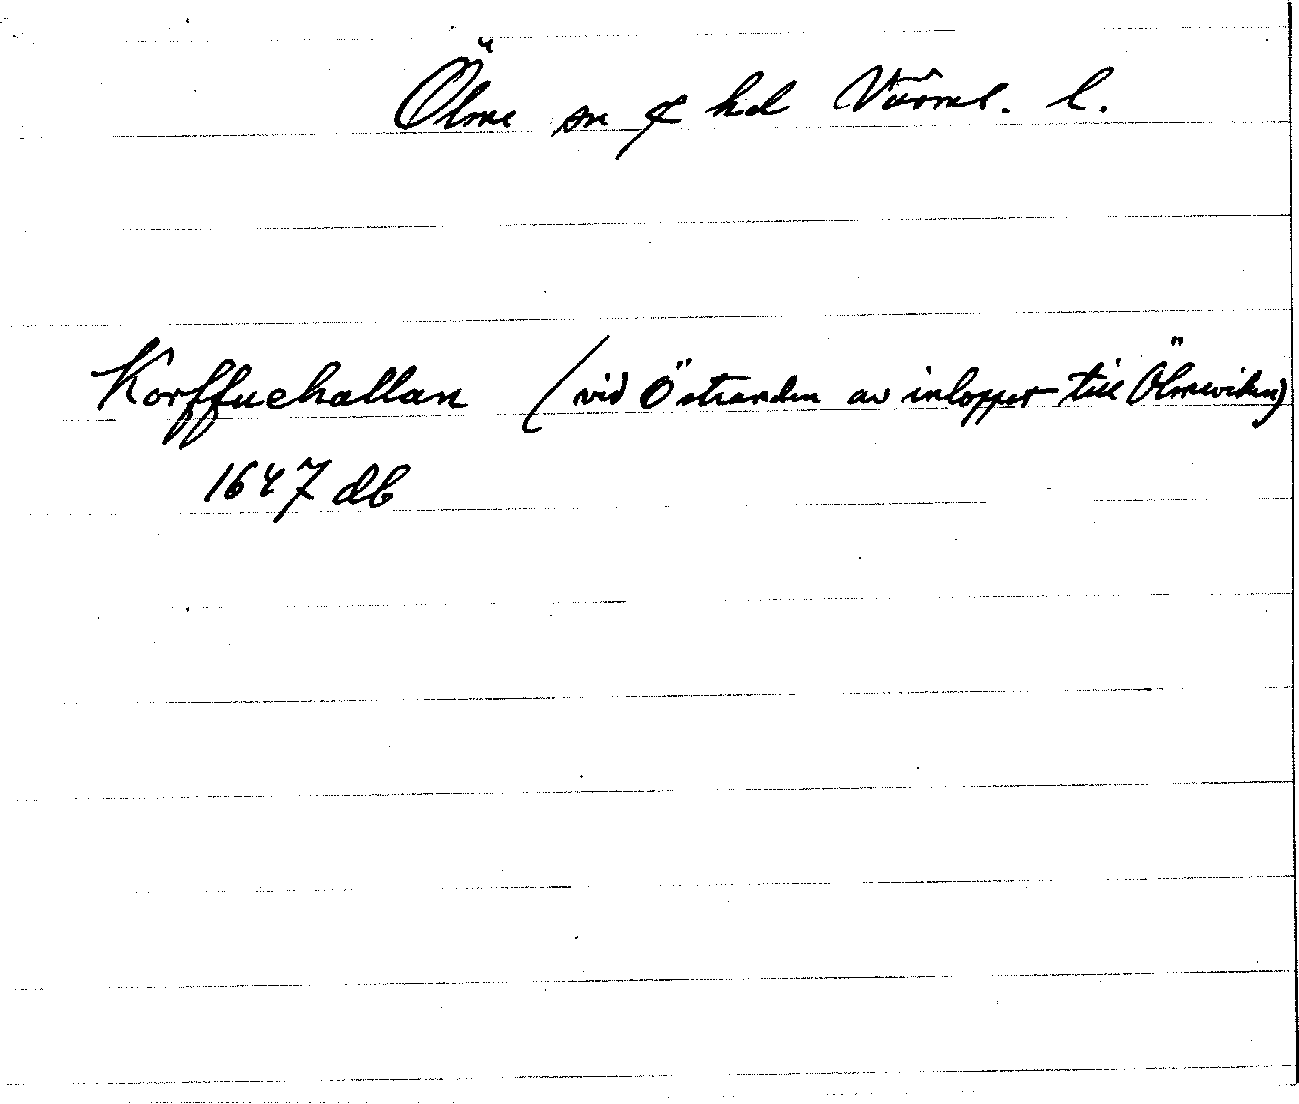 Ölme sn & hd Värml. l.
Korffuehallan (vid Östranden av inloppet till Ölmeviken)
1647 db